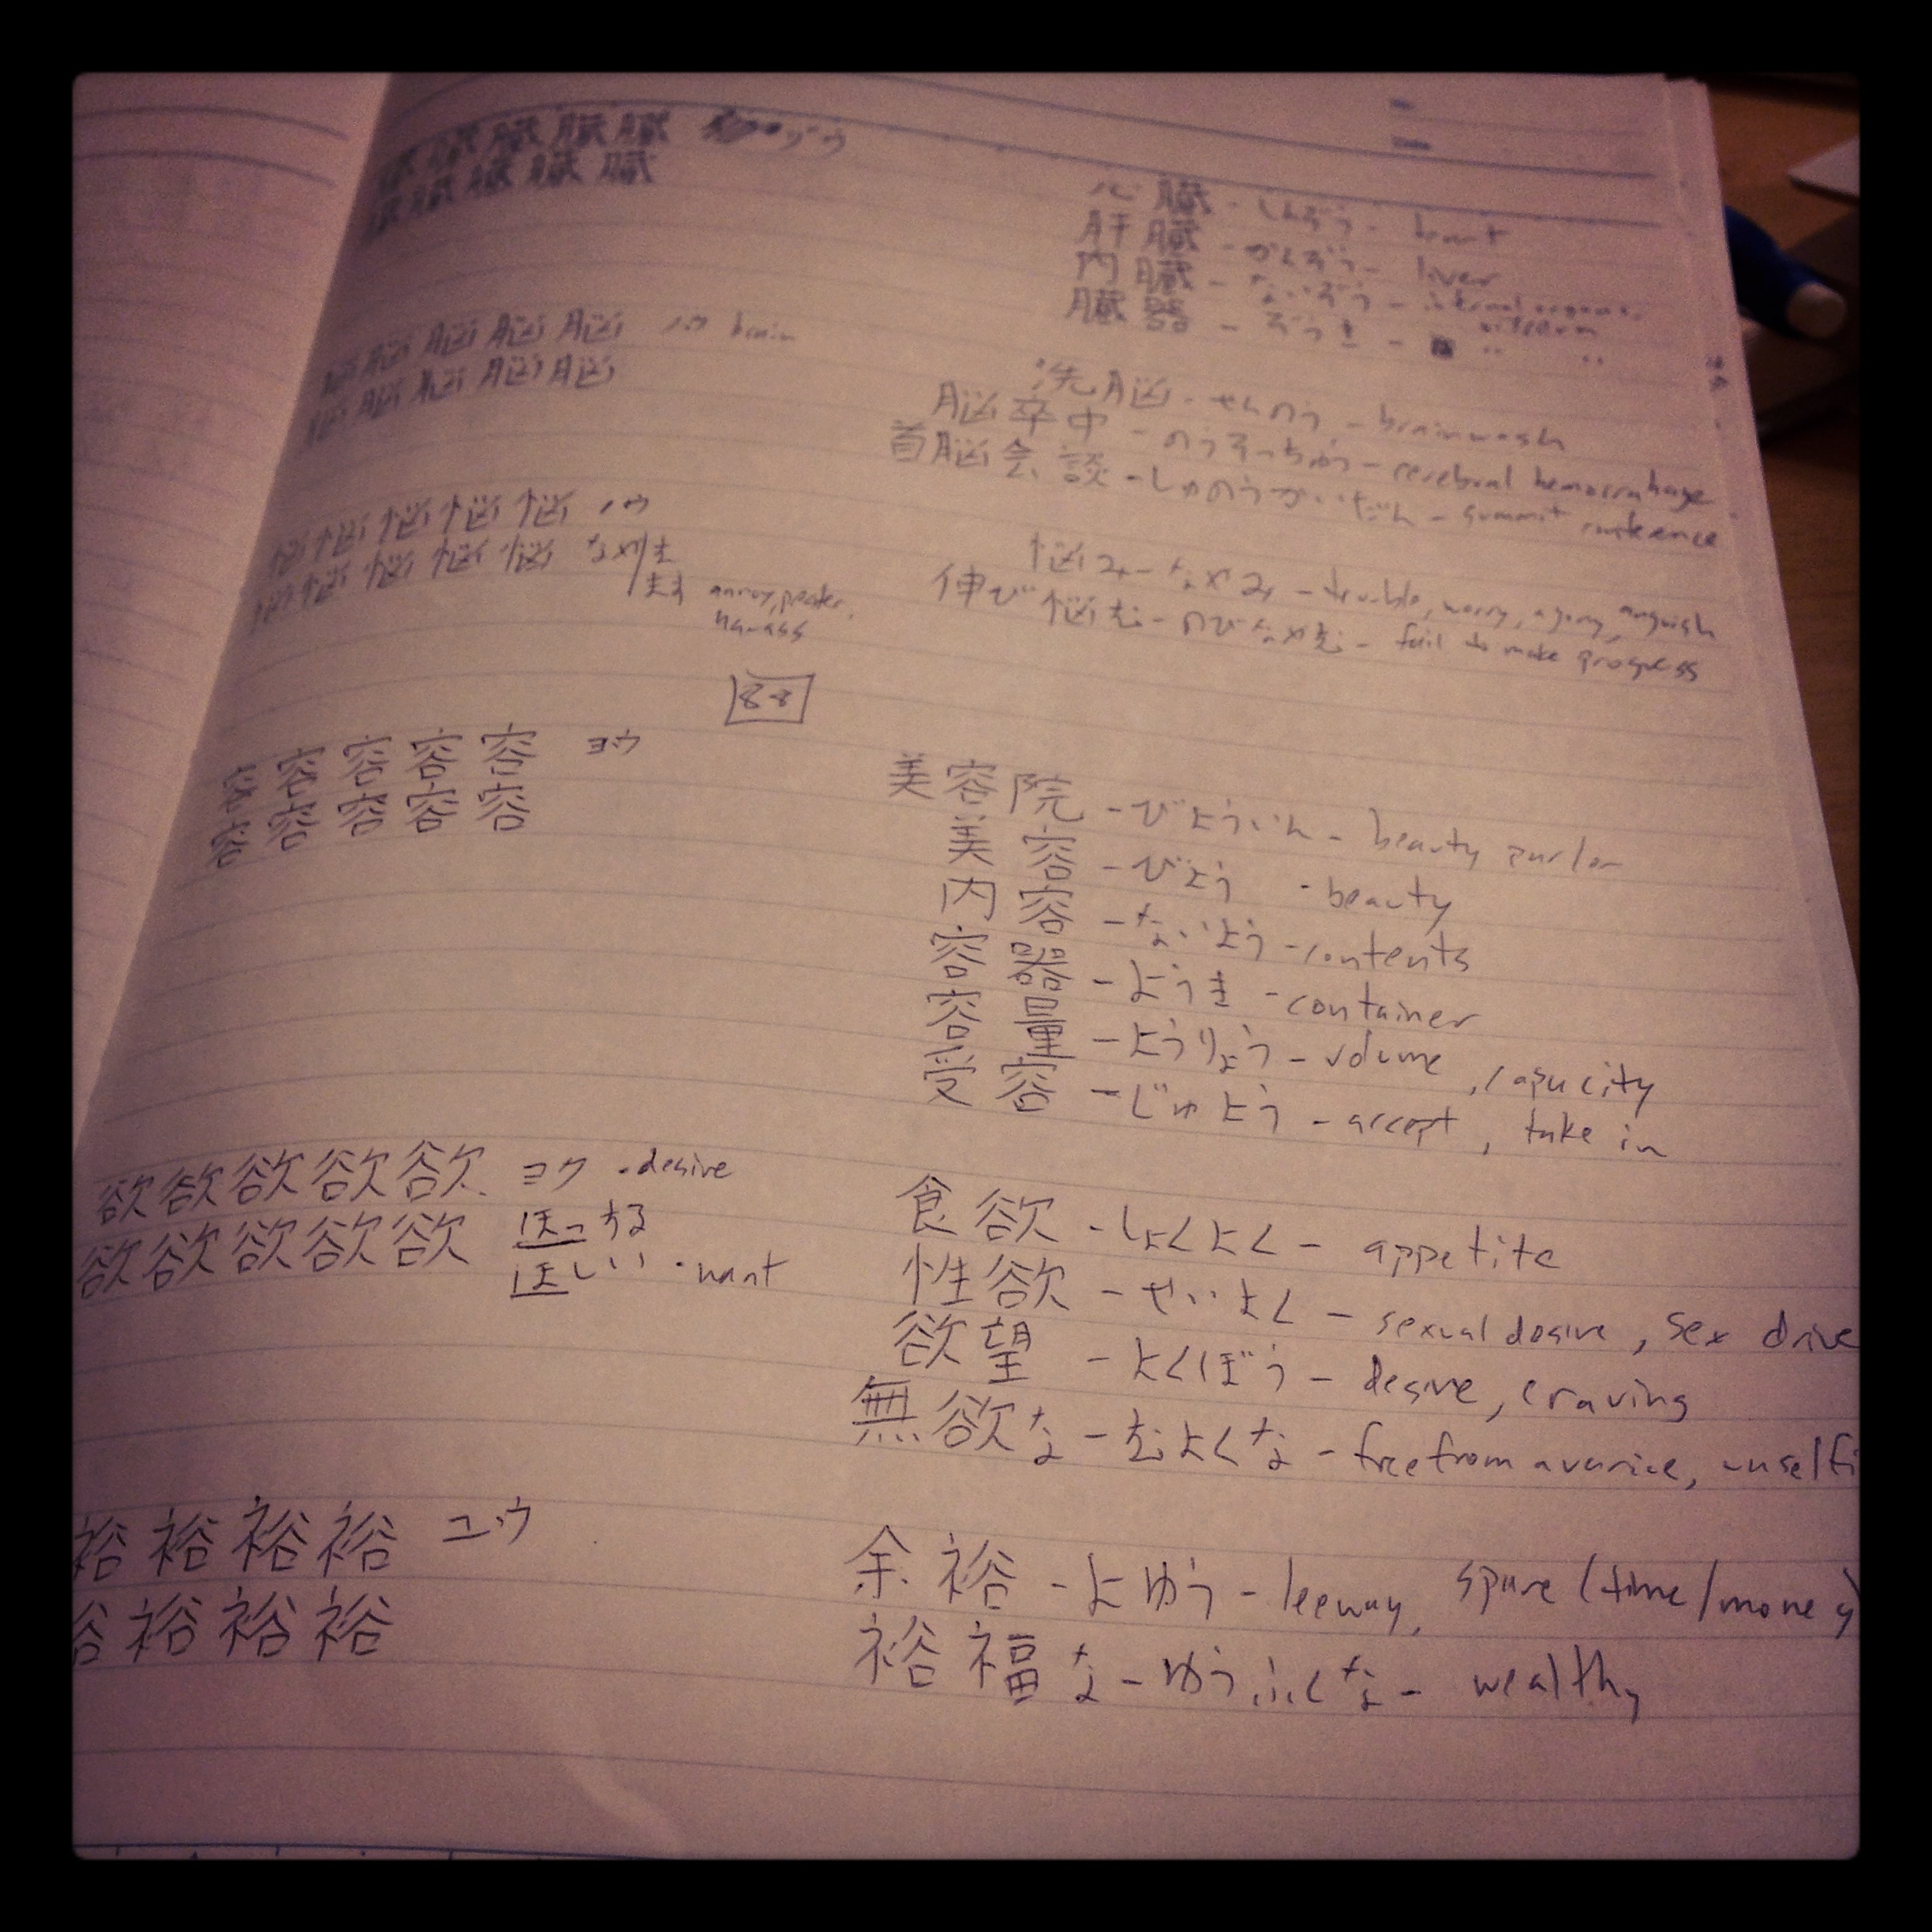 臓臓臓臓臓 ゾウ
臓臓臓臓臓
心臓 - しんぞう - heart
肝臓 - かんぞう - liver
内臓 - ないぞう - internal organs,
臓器 - ぞうき - " "
脳脳脳脳脳 ノウ brain
脳脳脳脳脳
洗脳 - せんのう - brainwash
脳卒中 - のうそっちゅう - cerebral hemorrhage
首脳会談 - しゅのうかいだん - summit conference
悩悩悩悩悩 ノウ
悩悩悩悩悩 なや
annoy,
harass
悩み - なやみ - trouble, worry, agony, anguish
伸び悩む - のびなやむ - fail to make progress
容容容容容 ヨウ
容容容容容
美容院 - びよういん - beauty parlor
美容 - びよう - beauty
内容 - ないよう - contents
容器 - ようき - container
容量 - ようりょう - volume, capacity
受容 - じゅよう - accept, take in
欲欲欲欲欲 ヨク - desire
欲欲欲欲欲 ほっする
ほしい - want
食欲 - しょくよく - appetite
性欲 - せいよく - sexual desire, sex drive
欲望 - よくぼう - desire, craving
無欲な - むよくな - free from avarice, unselfi
裕裕裕裕 ユウ
裕裕裕
余裕 - よゆう - leeway, spare (time/money)
裕福な - ゆうふくな - wealthy